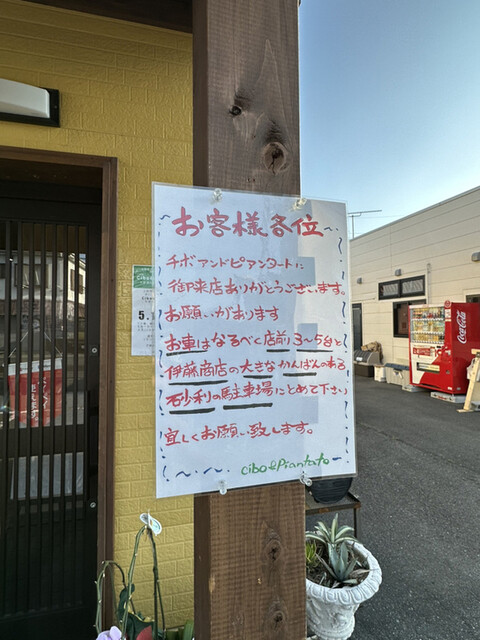 お客様各位
チボアンドピアンタートに
御来店ありがとうございます。
お願いがあります
お車はなるべく店前り3~5台と
伊藤商店の大きなかんばんのある
砂利の駐車場にとめて下さい
宜しくお願い致します。
cibo e Piantato
Coca-Cola
5.